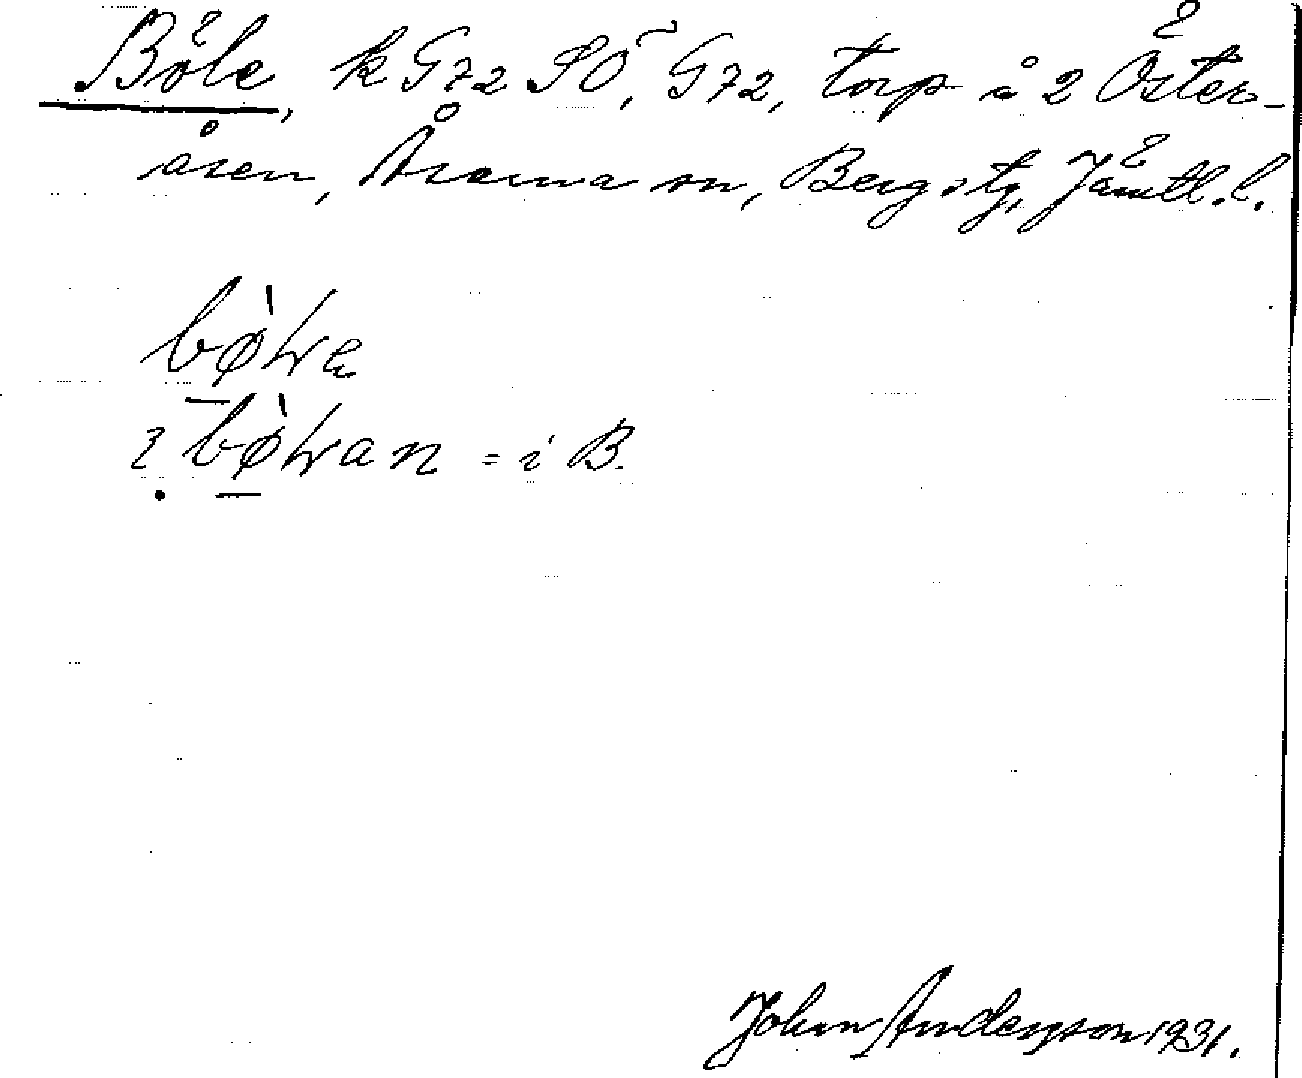 Böle, k G72 SÖ, G72, torp å 2 Öster-
åsen, Åsarna sn, Bergs tg, Jämtl. l.
bø̀ɬa
i bø̀ɬan = i B.
Johan Andersson 1931.